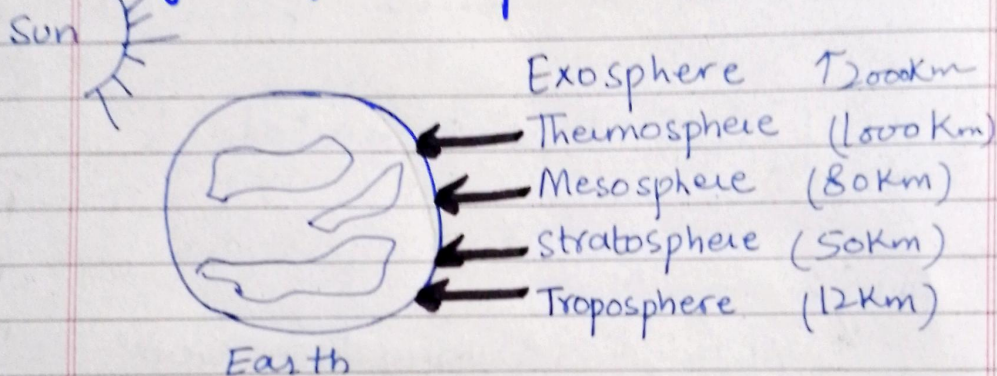 Sun
Exosphere ↑2000km
Thermosphere (1000 Km)
Mesosphere (80Km)
Stratosphere (50Km)
Troposphere (12Km)
Earth